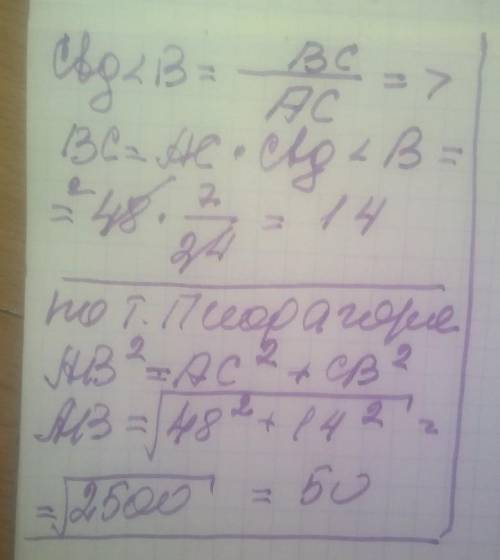 Ctg < B = BC / AC = >
BC = AC · Ctg < B =
= 48 · 7/24 = 14
по т. Пифагора
AB² = AC² + CB²
AB = √48² + 14² =
= √2500 = 50